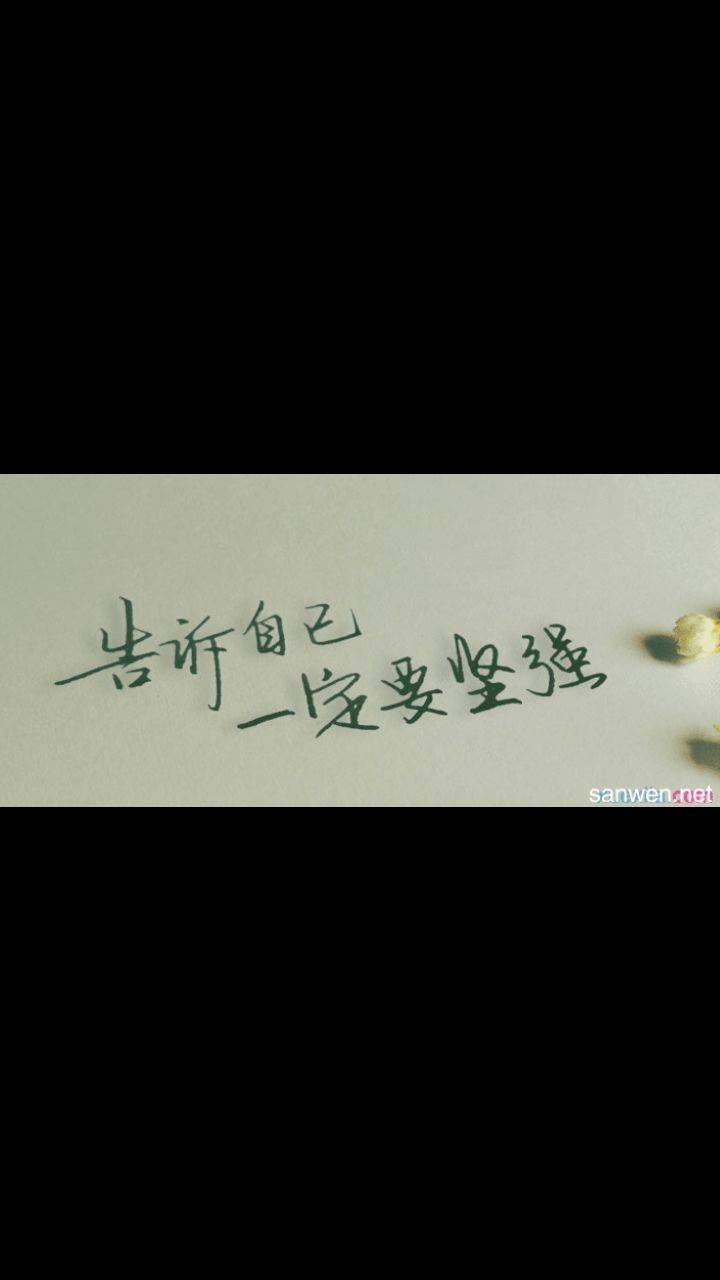 告诉自己
一定要坚强
sanwen.net